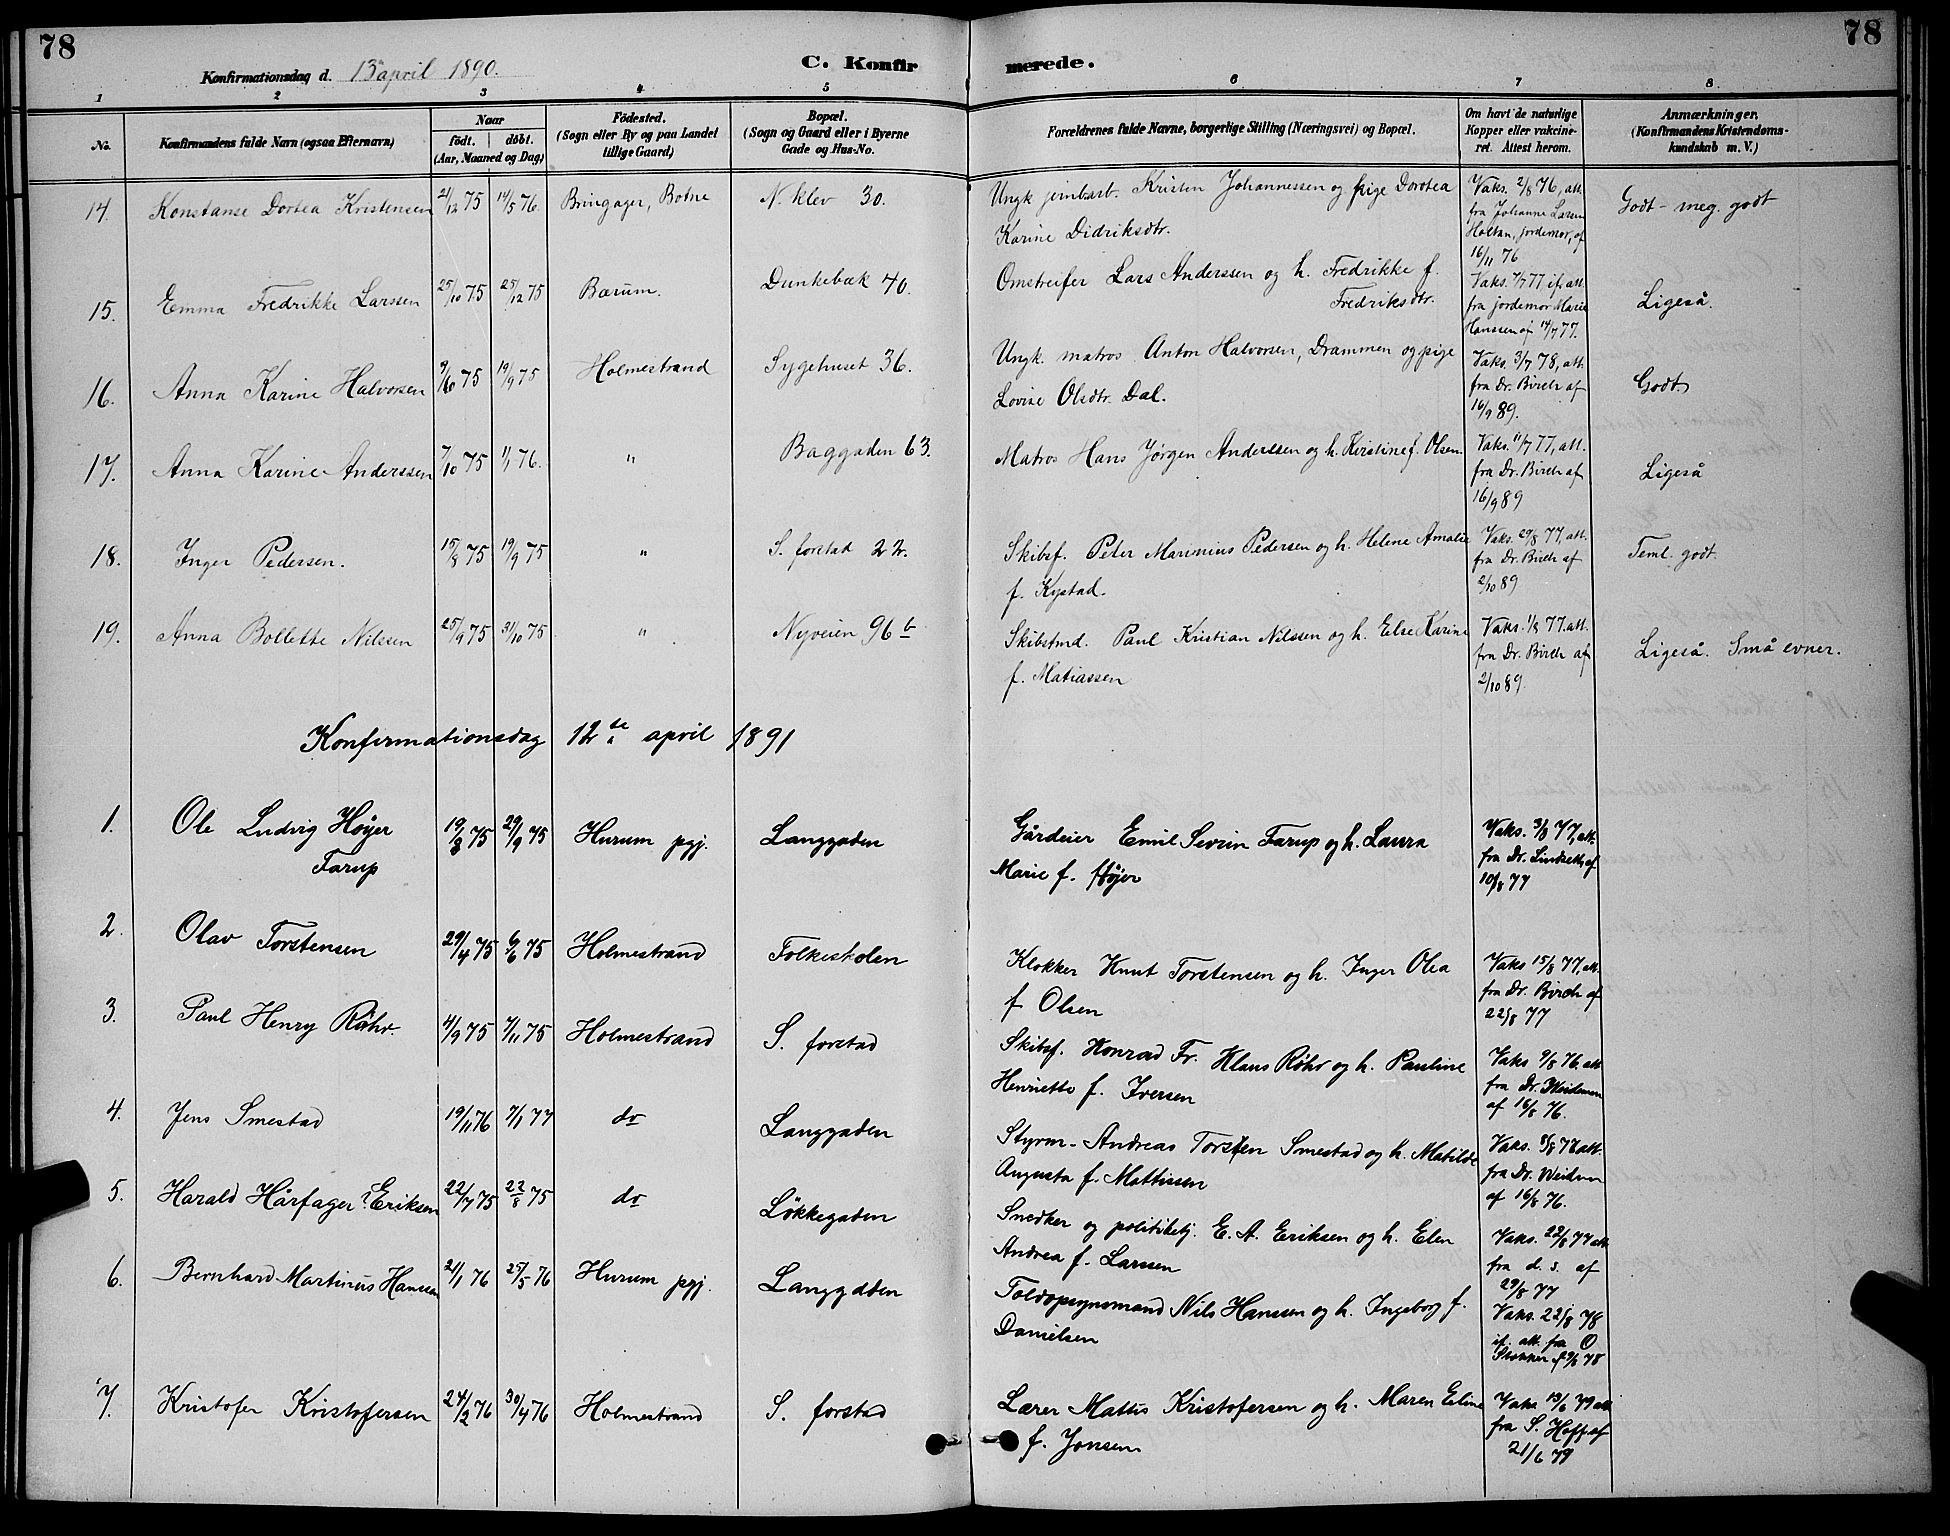 78
78
Konfirmationsdag d. 13de april 1890.
C. Konfir
merede.
1 2 3 4 5 6 7 8
No.
Konfirmandens fulde Navn (ogsaa Efternavn)
Naar
født. døbt.
(Aar, Maaned og Dag)
Fødested.
(Sogn eller By og paa Landet
tillige Gaard)
Bopæl.
(Sogn og Gaard eller i Byerne
Gade og Hus-No.
Forældrenes fulde Navne, borgerlige Stilling (Næringsvei) og Bopæl.
Om havt de naturlige
Kopper eller vakcine-
ret. Attest herom.
Anmærkninger.
(Konfirmandens Kristendoms-
kundskab m. V.)
14. Konstanse Dortea Kristensen 21/12 75 14/5 76. Bringager, Botne N. klev 30. Ungk jernbarb. Kristen Johannessen og pige Dorotea
Karine Didriksdtr.
Vaks. 2/8 76, att.
fra Johanne Larsen
Holtan, jordemor, af
16/11 76
Godt - meg. godt
15. Emma Fredrikke Larssen 25/10 75 25/12 75 Bærum. Dunkebæk 40. Omstreifer Lars Anderssen og h. Fredrikke f.
Fredriksdtr.
Vaks. 7/7 77 if. att.
fra jordemor Marie
Hanssen af 14/7 77.
Ligeså.
16. Anna Karine Halvorsen 9/10 75 19/9 75 Holmestrand Sygehuset 36. Ungk. matros Anton Halvorsen, Drammen og pige
Lovise Olsdtr. Dal.
Vaks. 3/7 78, att.
fra Dr. Birch af
16/9 89.
Godt
17. Anna Karine Anderssen 7/10 75 1/1 76. " Baggaden 63. Matros Hans Jørgen Anderssen og h. Kirstine f. Olsen.
Vaks. 11/7 77, att.
fra Dr. Birch af
16/9 89
Ligeså
18. Inger Pedersen. 15/8 75 19/9 75 " S. forstad 22. Skibsf. Peter Marinius Pedersen og h. Helene Amalie
f. Kystad.
Vaks. 29/8 77, att.
fra Dr. Birch af
2/10 89
Teml. godt.
19. Anna Bollette Nilssen 25/9 75 31/10 75 " Nyveien 96 b Skibstmd. Paul Kristian Nilssen og h. Else Karine
f. Matiassen
Vaks. 1/8 77. att.
fra Dr. Birch af
2/10 89.
Ligeså. Små evner.
Konfirmationsdag 12te april 1891
1. Ole Ludvig Høyer
Farup
19/8 75 29/9 75 Hurum pgj. Langgaden Gårdeier Emil Severin Farup og h. Laura
Marie f. Høyer
Vaks. 3/8 77, att.
fra Dr. Lindseth af
10/8 77
2. Olav Torstensen 29/4 75 6/6 75 Holmestrand Folkeskolen Klokker Knut Torstensen og h. Inger Olea
f Olsen
Vaks 15/8 77, att.
fra Dr. Birch af
22/8 77
3. Paul Henry Røhr. 4/9 75 7/11 75 Holmestrand S. forstad Skibsf. Konrad Fr. Klaus Røhr og h. Pauline
Henriette f. Iversen
Vaks 9/8 76. att
fra Dr. Weidman
af 16/8 76.
4. Jens Smestad 19/11 76 7/1 77 do Langgaden Styrm. Andreas Torsten Smestad og h. Matilde
Augusta f. Mattissen
Vaks. 8/8 77 att.
fra Dr. Weidman
af 16/8 76.
5. Harald Hårfager Eriksen 22/7 75 22/8 75 do Løkkegaden Snedker og politibetj. E. A. Eriksen og h. Elen
Andrea f. Larssen
Vaks. 22/8 77 att
fra d. s. af
29/8 77
6. Bernhard Martinus Hanssen 21/1 76 25/5 76 Hurum pgj. Langgaden Toldopsynsmand Nils Hanssen og h. Ingeborg f.
Danielsen
Vaks. 22/8 78
if. att. fra O
Stokker af 29/8 78
7. Kristofer Kristofersen 24/2 76 30/4 76 Holmestrand S. forstad Lærer Mattis Kristofersen og h. Maren Eline
f. Jonsen
Vaks 13/6 79 att
fra S. Hoff af
21/6 79